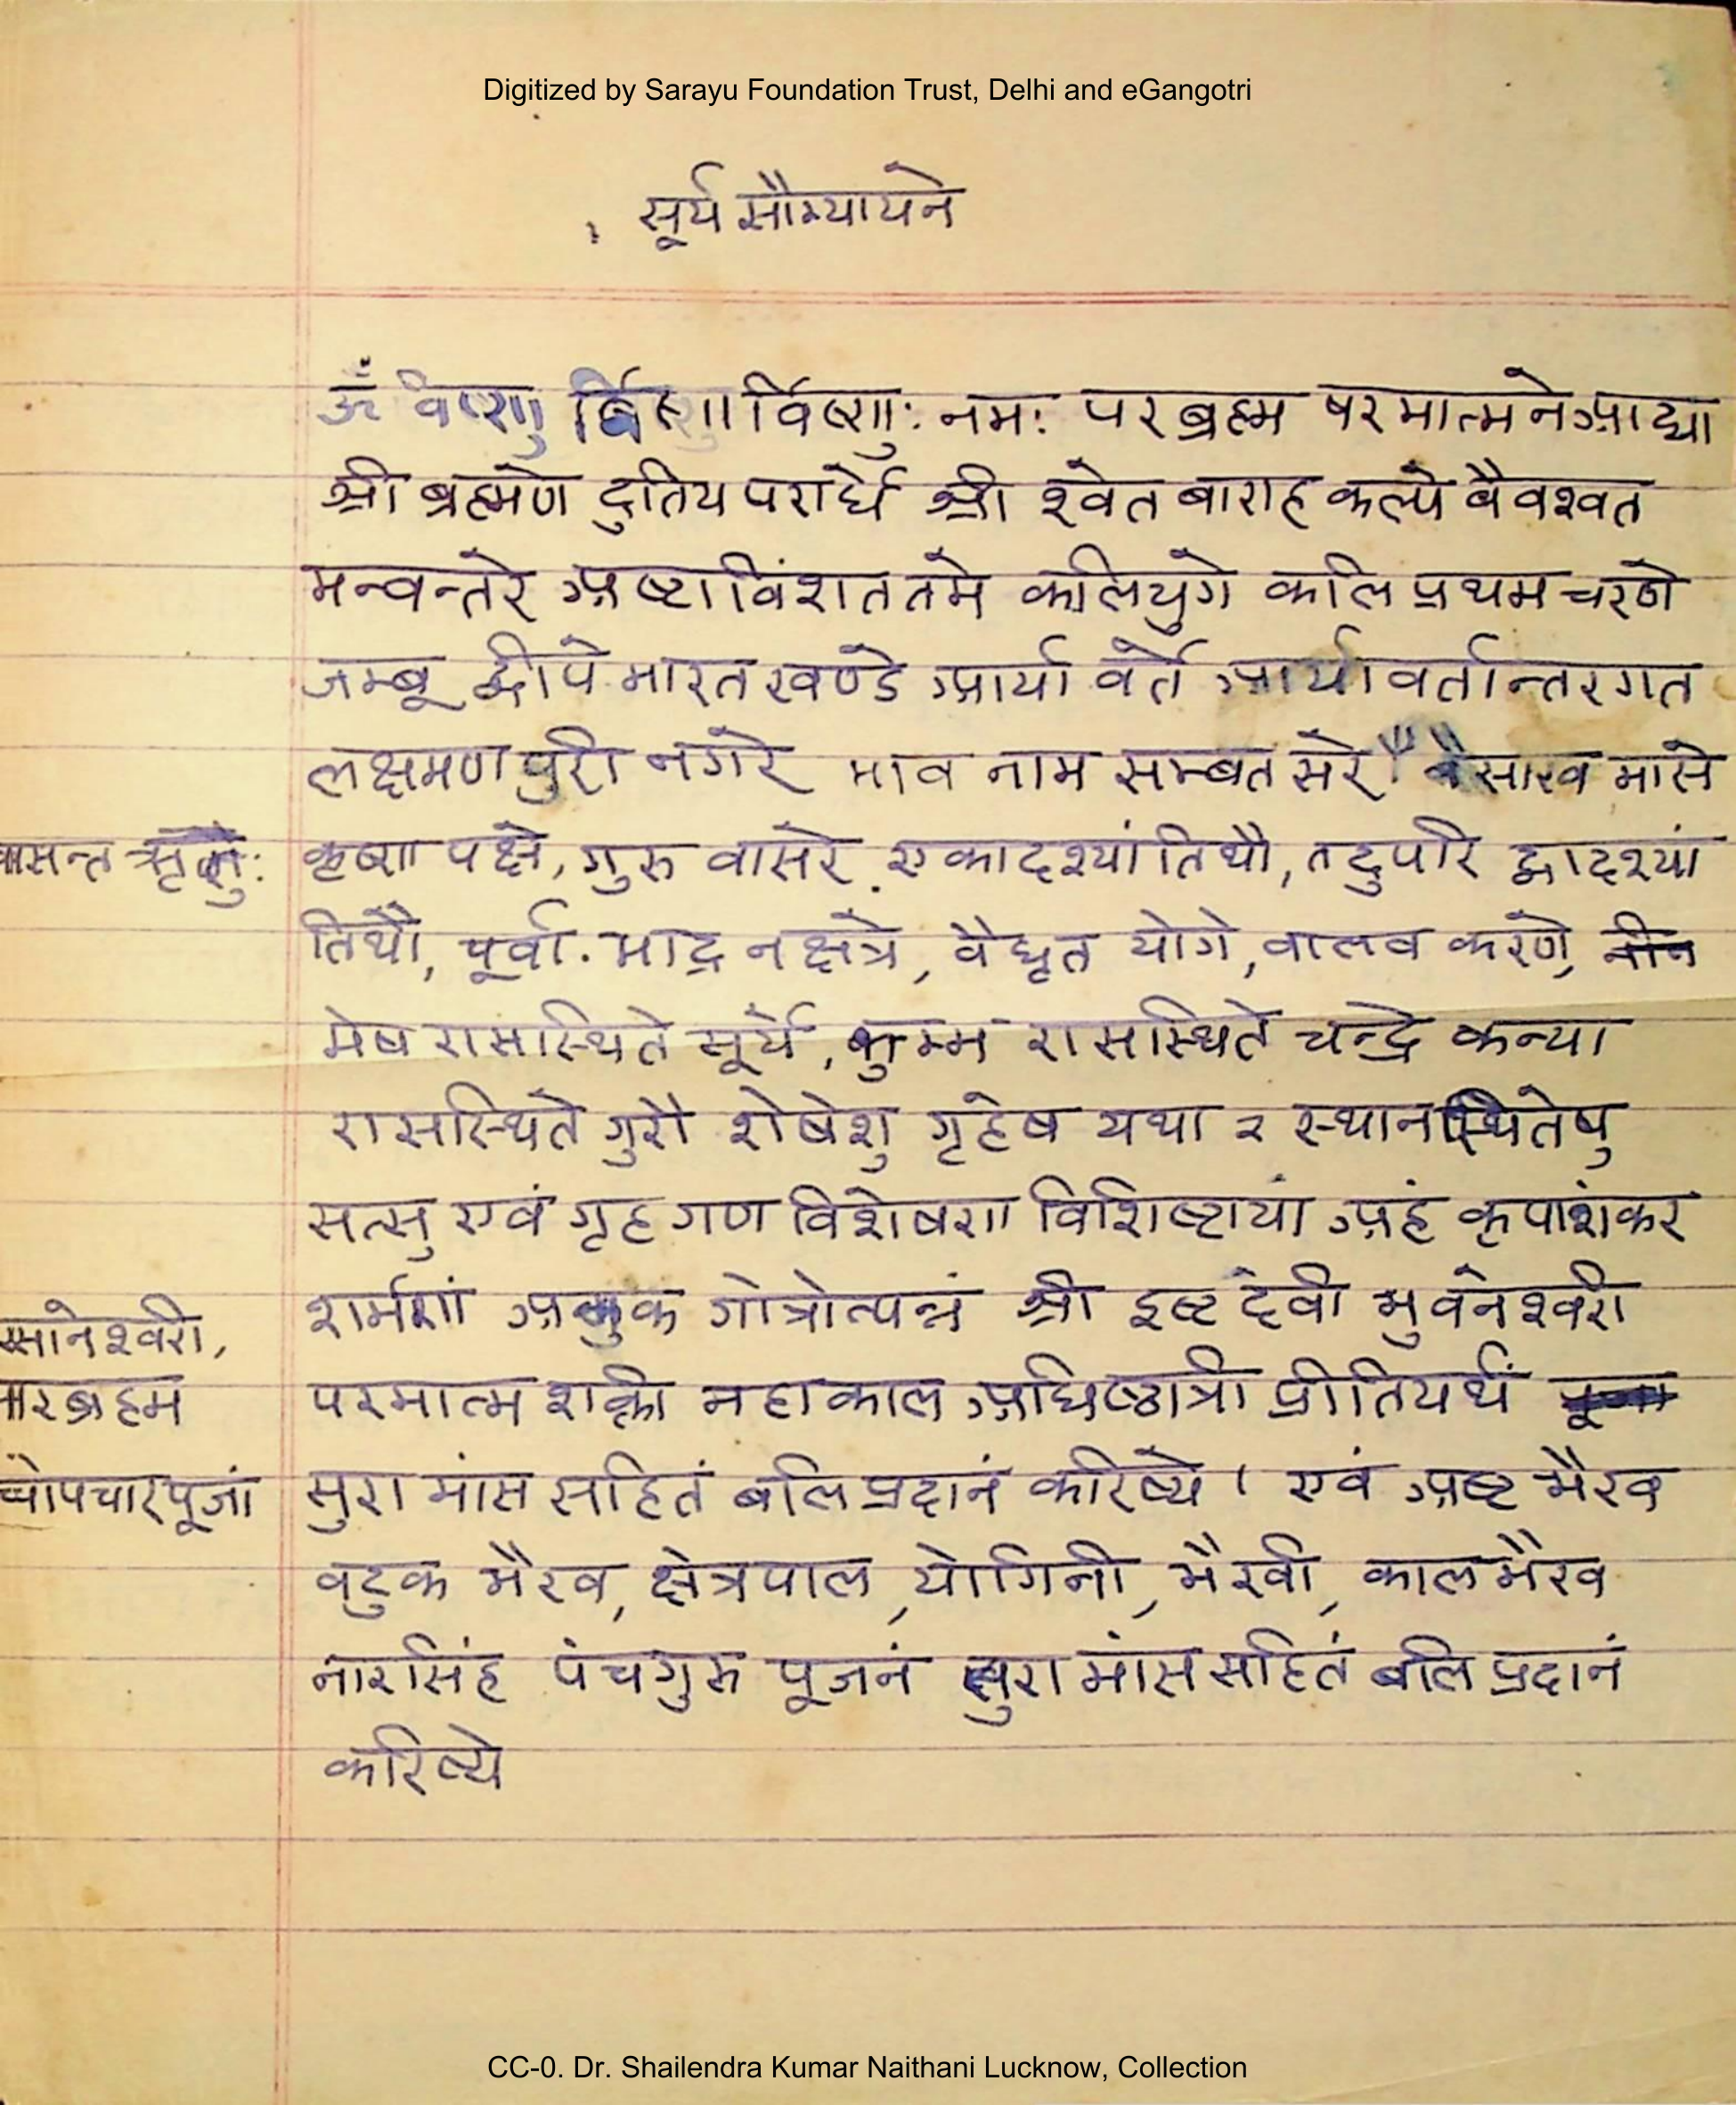 Digitized by Sarayu Foundation Trust, Delhi and eGangotri
सूर्य सौम्यायने
ॐ विष्णु र्विष्णा र्विष्णु: नम: परब्रह्म परमात्मने आद्या
श्री ब्रह्मणे दुतिय परार्धे श्री श्वेत बाराह कल्पे वैवश्वत
मन्वन्तरे अष्टाविंशत तमे कलियुगे कलि प्रथम चरणे
जम्बू द्वीपे भारत खण्डे आर्या वर्ते आर्यावर्तान्तरगत
लक्षमण पुरी नगरे भाव नाम सम्बत सरे वैसाख मासे
वासन्त ऋतु: कृष्ण पक्षे, गुरु वासरे, एकादश्यां तिथौ, तदुपरि द्वादश्यां
तिथौ, पूर्वा. भाद्र नक्षत्रे, वैधृत योगे, वालव करणे,
मेष रासस्थिते सूर्ये, कुम्भ रासस्थिते चन्द्रे कन्या
रासस्थिते गुरौ शेषेशु गृहेष यथा २ स्थानस्थितेषु
सत्सु एवं गृह गण विशेषण विशिष्टायां अहं कृपाशंकर
शर्मणां अमुक गोत्रोत्पन्नं श्री इष्ट देवी भुवनेश्वरी
मानेश्वरी,
ारब्रहम परमात्म शक्ती महाकाल अधिष्ठात्री प्रीतियर्थं
चोपचार पूजां सुरा मांस सहितं बलि प्रदानं करिष्ये । एवं अष्ट भैरव
वटुक भैरव, क्षेत्रपाल, योगिनी, भैरवी, कालभैरव
नारसिंह पंचगुरु पूजनं सुरा मांस सहितं बलि प्रदानं
करिष्ये
CC-0. Dr. Shailendra Kumar Naithani Lucknow, Collection